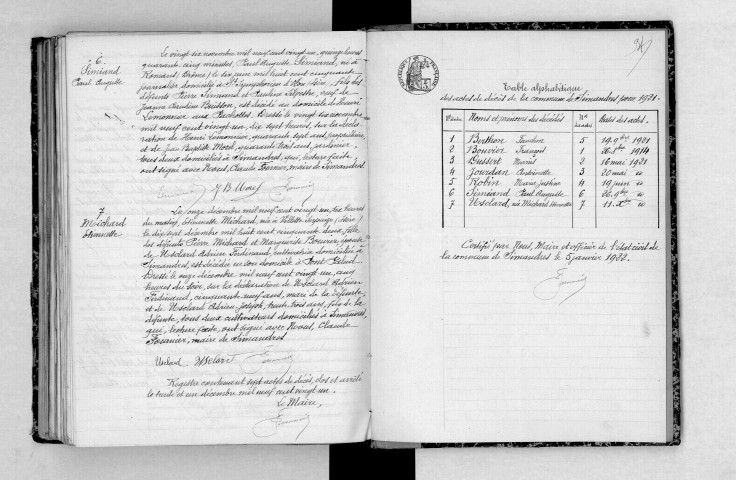 6.
Simiand
Paul Auguste
Le vingt six novembre mil neuf cent vingt un, quinze heures
quarante cinq minutes, Paul Auguste Simiand, né à
Romans (Drôme) le six juin mil huit cent cinquante
journalier domicilié à St Symphorien d'Ozon Isère, fils des
défunts Pierre Simiand et Pauline Silvestre, veuf de
Jeanne Claudine Buisson, est décédé au domicile de Henri
Lemonnier aux Pachottes. Dressé le vingt six novembre
mil neuf cent vingt-un, dix sept heures, sur la décla-
ration de Henri Lemonnier, quarante sept ans, propriétaire,
et de Jean Baptiste Morel, quarante trois ans, jardinier,
tous deux domiciliés à Simandres, qui, lecture faite,
ont signé avec Nous, Claude Fournier, maire de Simandres.
7
Michard
Etiennette
Le onze décembre mil neuf cent vingt un, six heures
du matin, Etiennette Michard, née à Villette Serpaize (Isère)
le dix sept décembre mil huit cent cinquante deux, fille
des défunts Pierre Michard et Marguerite Bouvier, épouse
de Usclard Adrien Ferdinand, cultivatrice domiciliée à
Simandres, est décédée en son domicile à Pont
Dressé le onze décembre mil neuf cent vingt un, cinq
heures du soir, sur la déclaration de Usclard Adrien
Ferdinand, cinquante neuf ans, mari de la défunte,
et de Usclard Adrien Joseph, trente trois ans, fils de la
défunte, tous deux cultivateurs domiciliés à Simandres,
qui, lecture faite, ont signé avec Nous, Claude
Fournier, maire de Simandres
Usclard Usclard
Registre contenant sept actes de décès, clos et arrêté
le trente et un décembre mil neuf cent vingt un.
Le Maire,
Table alphabétique
des actes de décès de la commune de Simandres pour 1921.
Noms et prénoms des décédés Nos des actes Dates des actes
1 Berthon Claudine 5 19 9bre 1921
2 Bouvier François 1 1914
3 Dussert Marius 2 16 mai 1921
4 Jourdan Antoinette 3 20 mai "
5 Robin Marie Justine 4 19 juin "
6 Simiand Paul Auguste 6 26 9bre "
7 Usclard, née Michard Etiennette 7 11 Xbre "
Certifié par Nous, Maire et officier de l'état civil de
la commune de Simandres le 5 janvier 1922.